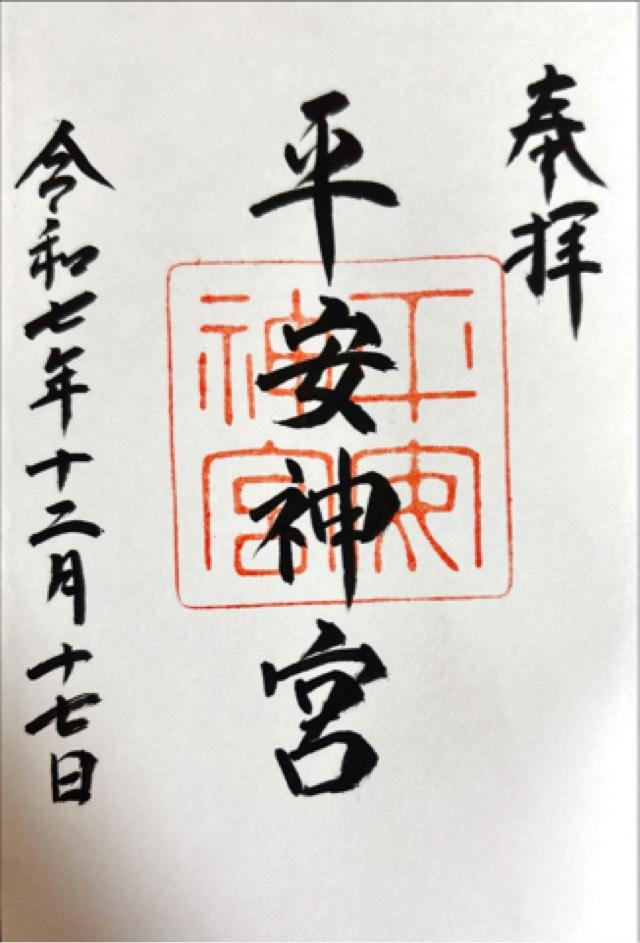 奉拝
平安神宮
平安神宮
令和七年十二月十七日